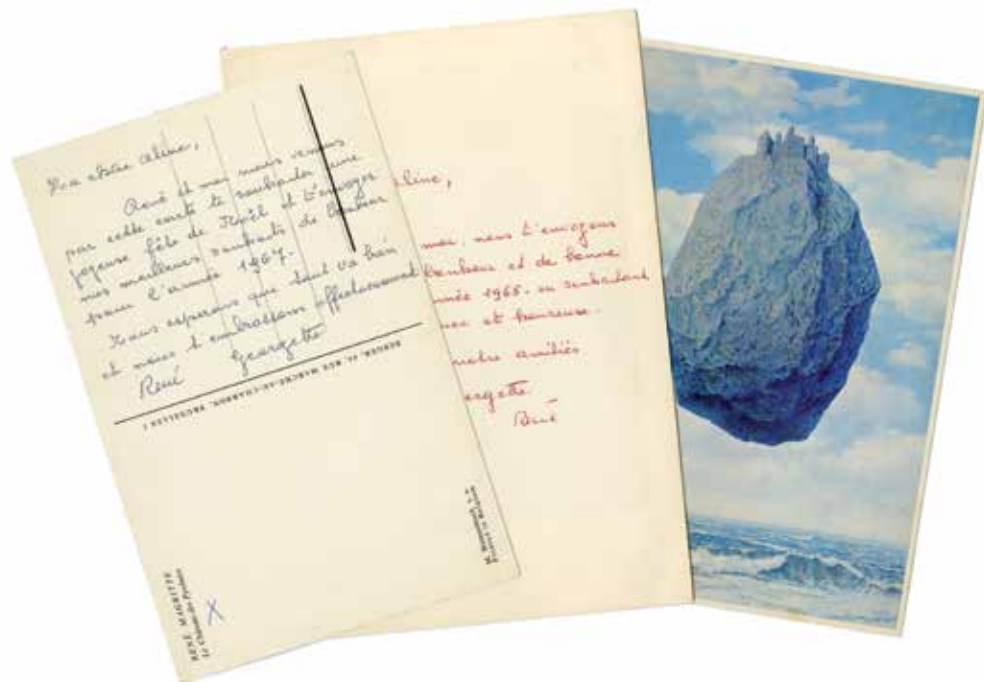 Ma chère Aline,
René et moi nous venons
par cette carte te souhaiter une
joyeuse fête de Noël et t'envoyer
nos meilleurs souhaits de bonheur
pour l'année 1967.
Nous espérons que tout va bien
et nous t'embrassons affectueusement
Georgette
René
BERGER, 42, RUE MARCHÉ-AU-CHARBON, BRUXELLES 1
RENÉ MAGRITTE
Le Château des Pyrénées
X
line,
moi, nous t'envoyons
bonheur et de bonne
année 1965. en souhaitant
et heureuse.
notre amitiés
orgette
René